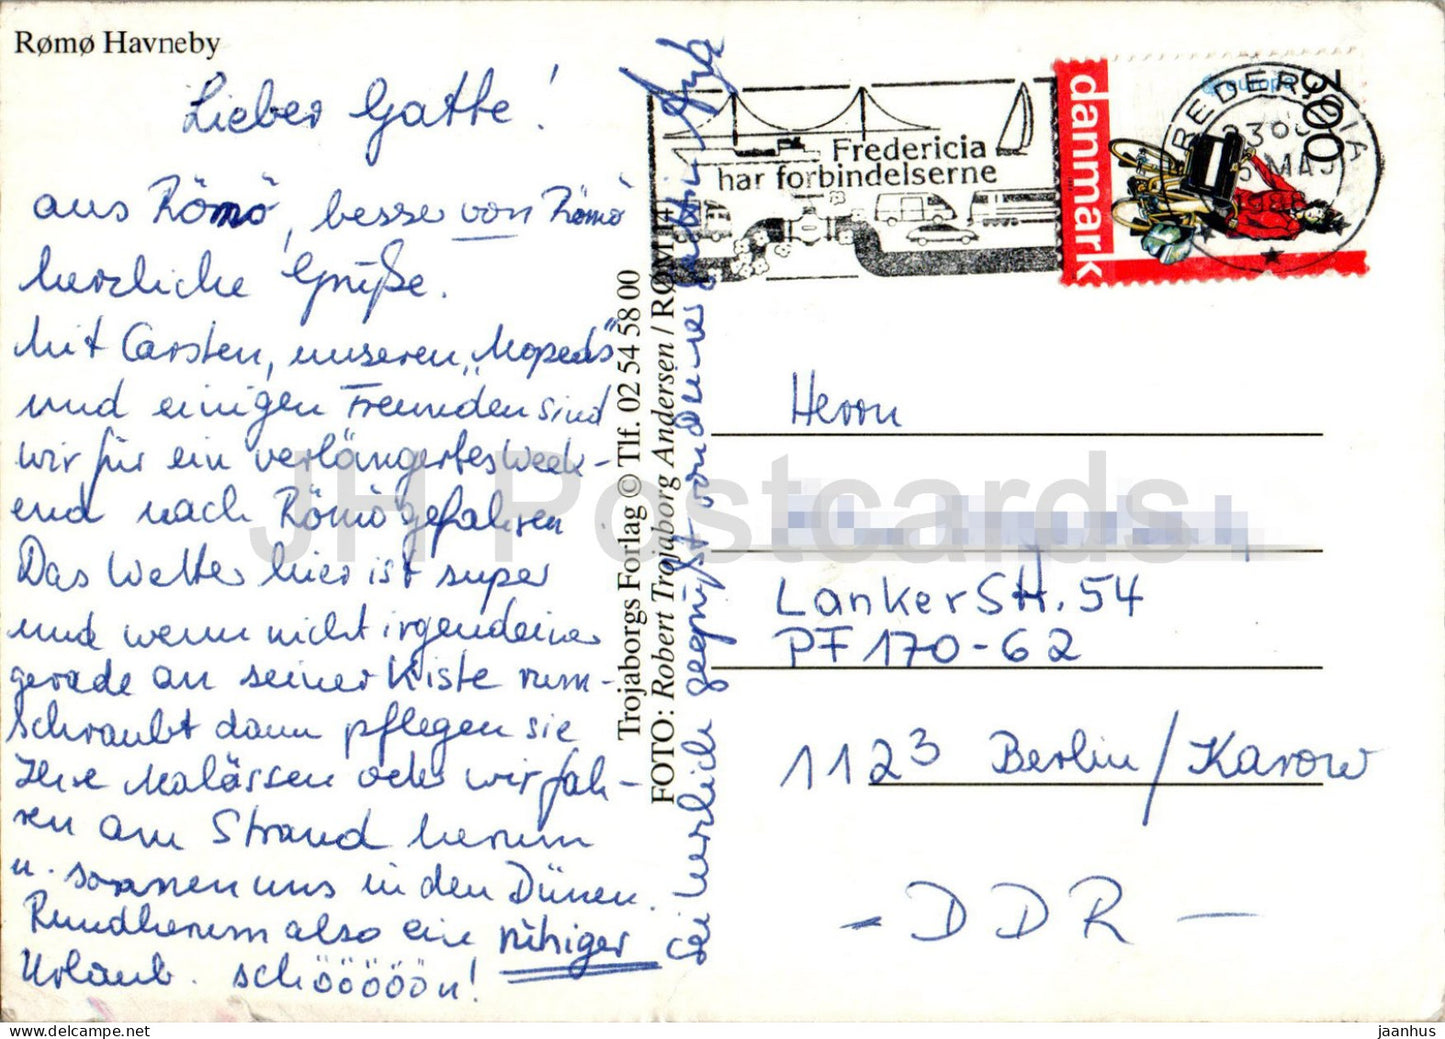 Rømø Havneby
Lieber Gatte!
aus Römö, besser von Römö
herzliche Grüße.
Mit Carsten, unseren „Mopeds"
und einigen Freunden sind
wir für ein verlängertes Week-
end nach Römö gefahren
Das Wetter hier ist super
und wenn nicht irgendeiner
gerade an seiner Kiste rum-
schraubt dann pflegen sie
Ihre Malässen oder wir fah-
ren am Strand herum
u. sonnen uns in den Dünen.
Rundherum also ein ruhiger
Urlaub. schöööööön!
Sei herzlich gegrüßt von Deiner Gattin
Trojaborgs Forlag © Tlf. 02 54 58 00
FOTO: Robert Trojaborg Andersen / RØM 14
Fredericia
har forbindelserne
danmark
europa
FREDERICIA
Herrn
Lanker Str. 54
PF 170-62
1123 Berlin/Karow
- DDR -
JH Postcards
jaanhus@delcampe.net